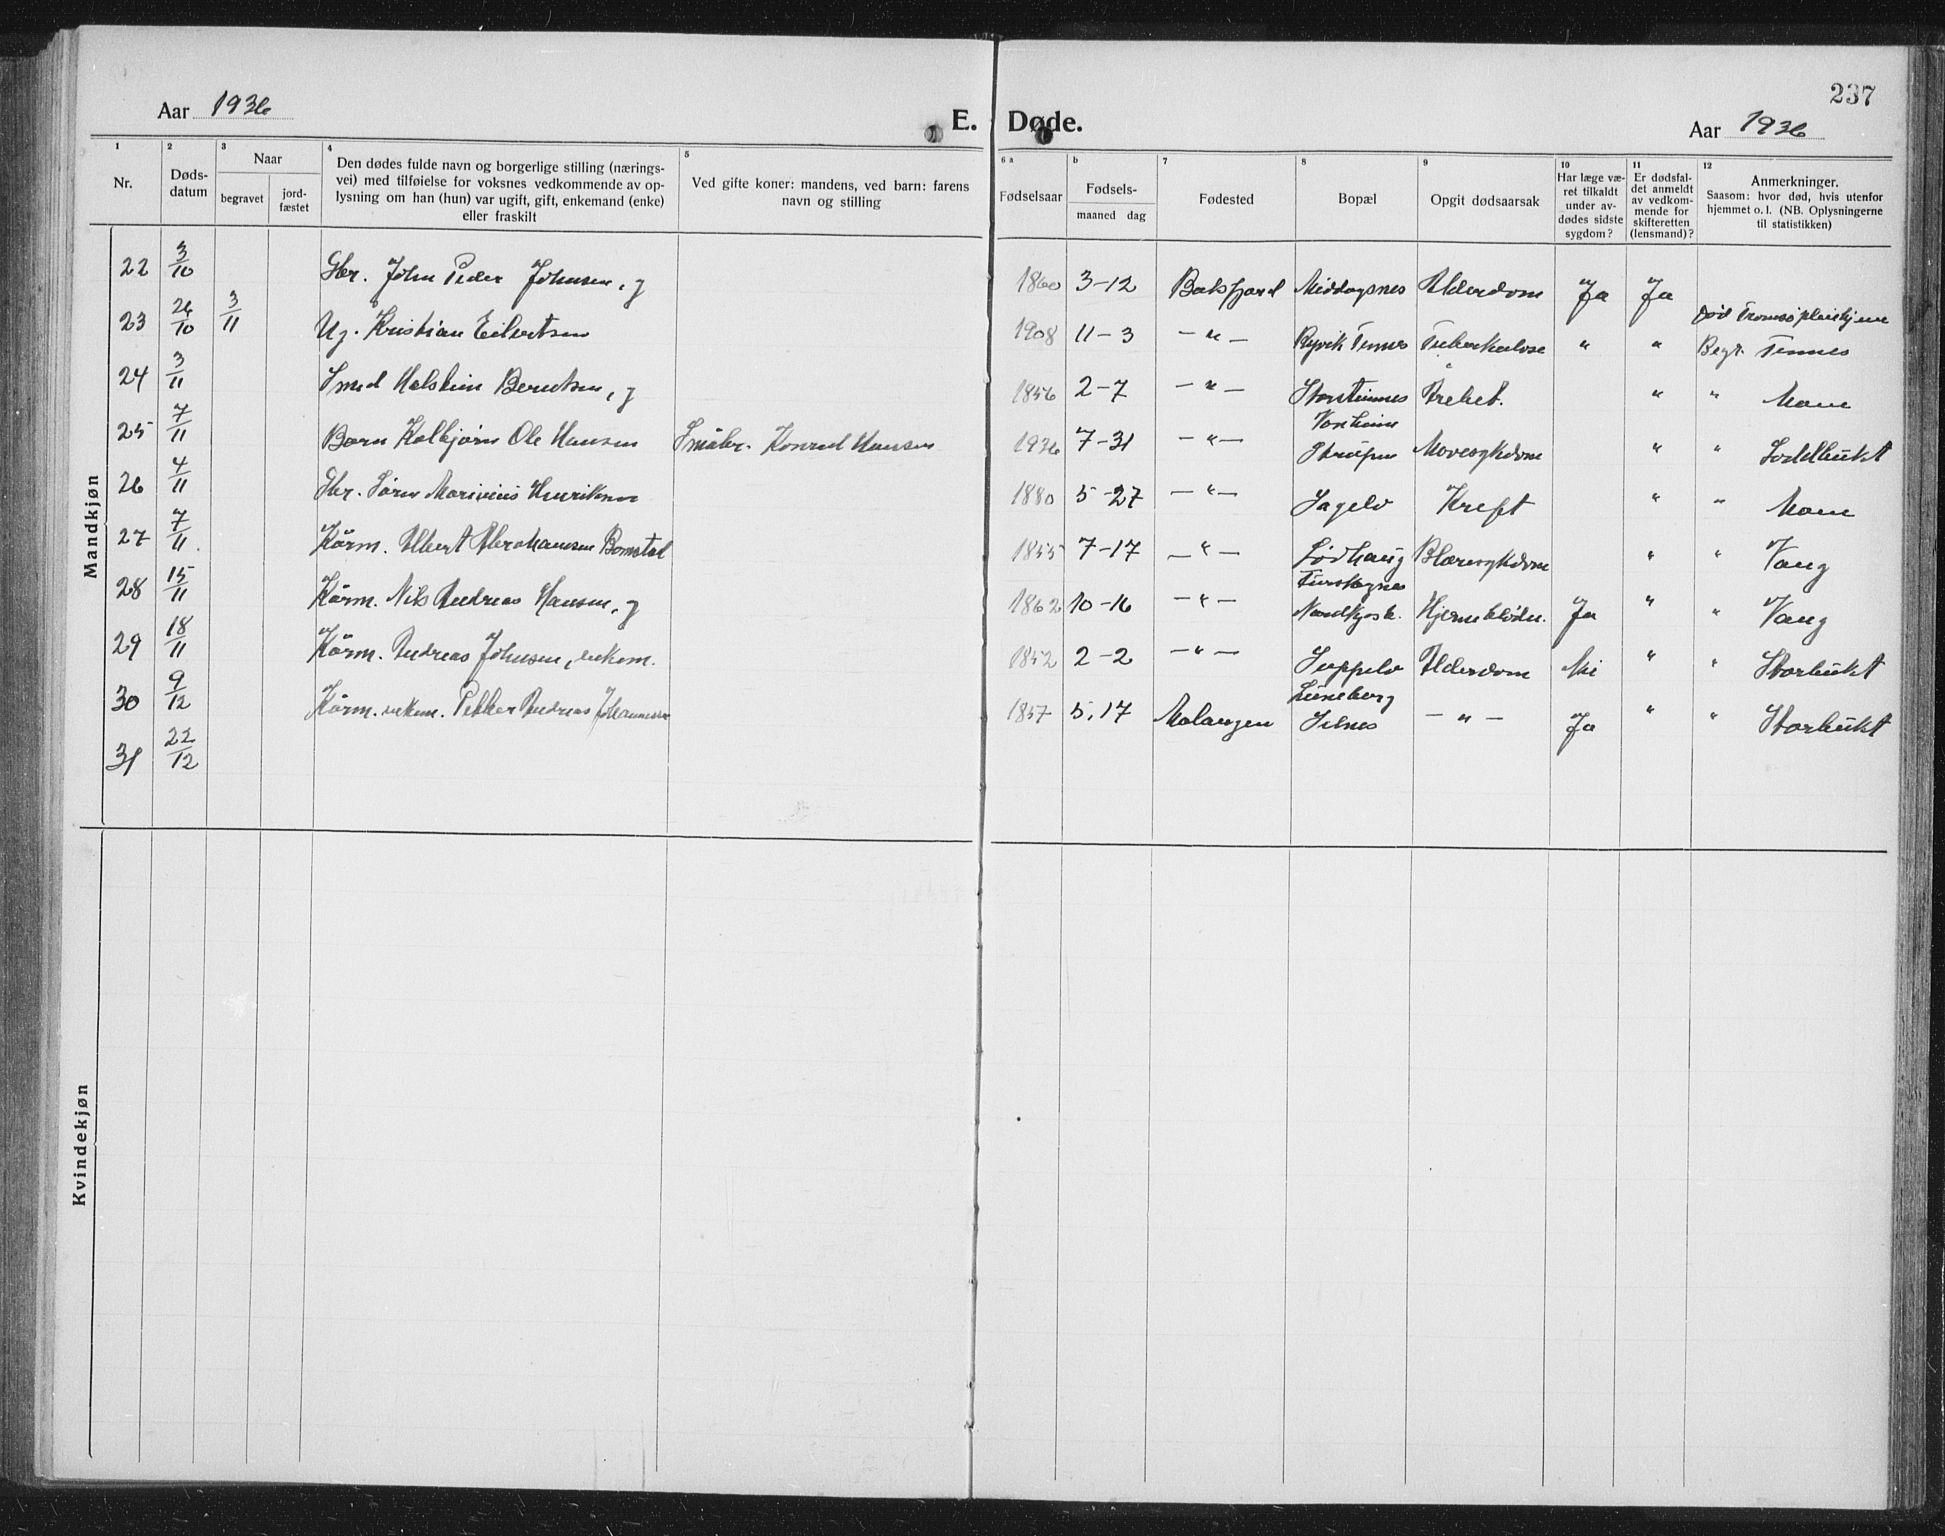 237
Aar 1936
E. Døde.
Aar 1936
1 2 3 4 5 6 a b 7 8 9 10 11 12
Nr.
Døds-
datum
Naar
begravet
jord-
fæstet
Den dødes fulde navn og borgerlige stilling (nærings-
vei) med tilføielse for voksnes vedkommende av op-
lysning om han (hun) var ugift, gift, enkemand (enke)
eller fraskilt
Ved gifte koner: mandens, ved barn: farens
navn og stilling
Fødselsaar
Fødsels-
maaned dag
Fødested
Bopæl
Opgit dødsaarsak
Har læge væ-
ret tilkaldt
under av-
dødes sidste
sygdom?
Er dødsfal-
det anmeldt
av vedkom-
mende for
skifteretten
(lensmand)?
Anmerkninger.
Saasom: hvor død, hvis utenfor
hjemmet o. l. (NB. Oplysningerne
til statistikken)
Mandkjøn
22 3/10 Gbr. John Peder Johnsen, g 1860 3-12 Balsfjord Middagsnes Alderdom Ja Ja
23 26/10 3/11 Ug. Kristian Eilertsen 1908 11-3 -"- Tennes Tuberkulose " " Død Tromsø pleiehjem
Begr. Tennes
24 3/11 Smed Halstein Berntsen, g 1856 2-7 -"- Storsteinnes " "
25 7/11 Barn Kolbjørn Ole Hansen Småbr. Konrad Hansen 1936 7-31 -"- Mavesykdom " "
26 4/11 Gbr. Søren Henriksen 1880 5-27 -"- Sagelv Kreft " "
27 7/11 Kårm. Albert Abrahamsen Bomstad 1855 7-17 -"- Blæresykdom " " Vang
28 15/11 Kårm. Nils Andreas Hansen, g 1862 10-16 -"- Nordkjosb. Hjerneblødn. Ja " " Vang
29 18/11 Kårm. Andreas Johnsen, enkem. 1852 2-2 -"- Alderdom Nei " " Storbukt
30 9/12 Kårm. enkem. Petter Andreas Johannessen 1857 5.17 Malangen Selnes -"- Ja " " Storbukt
31 22/12
Kvindekjøn